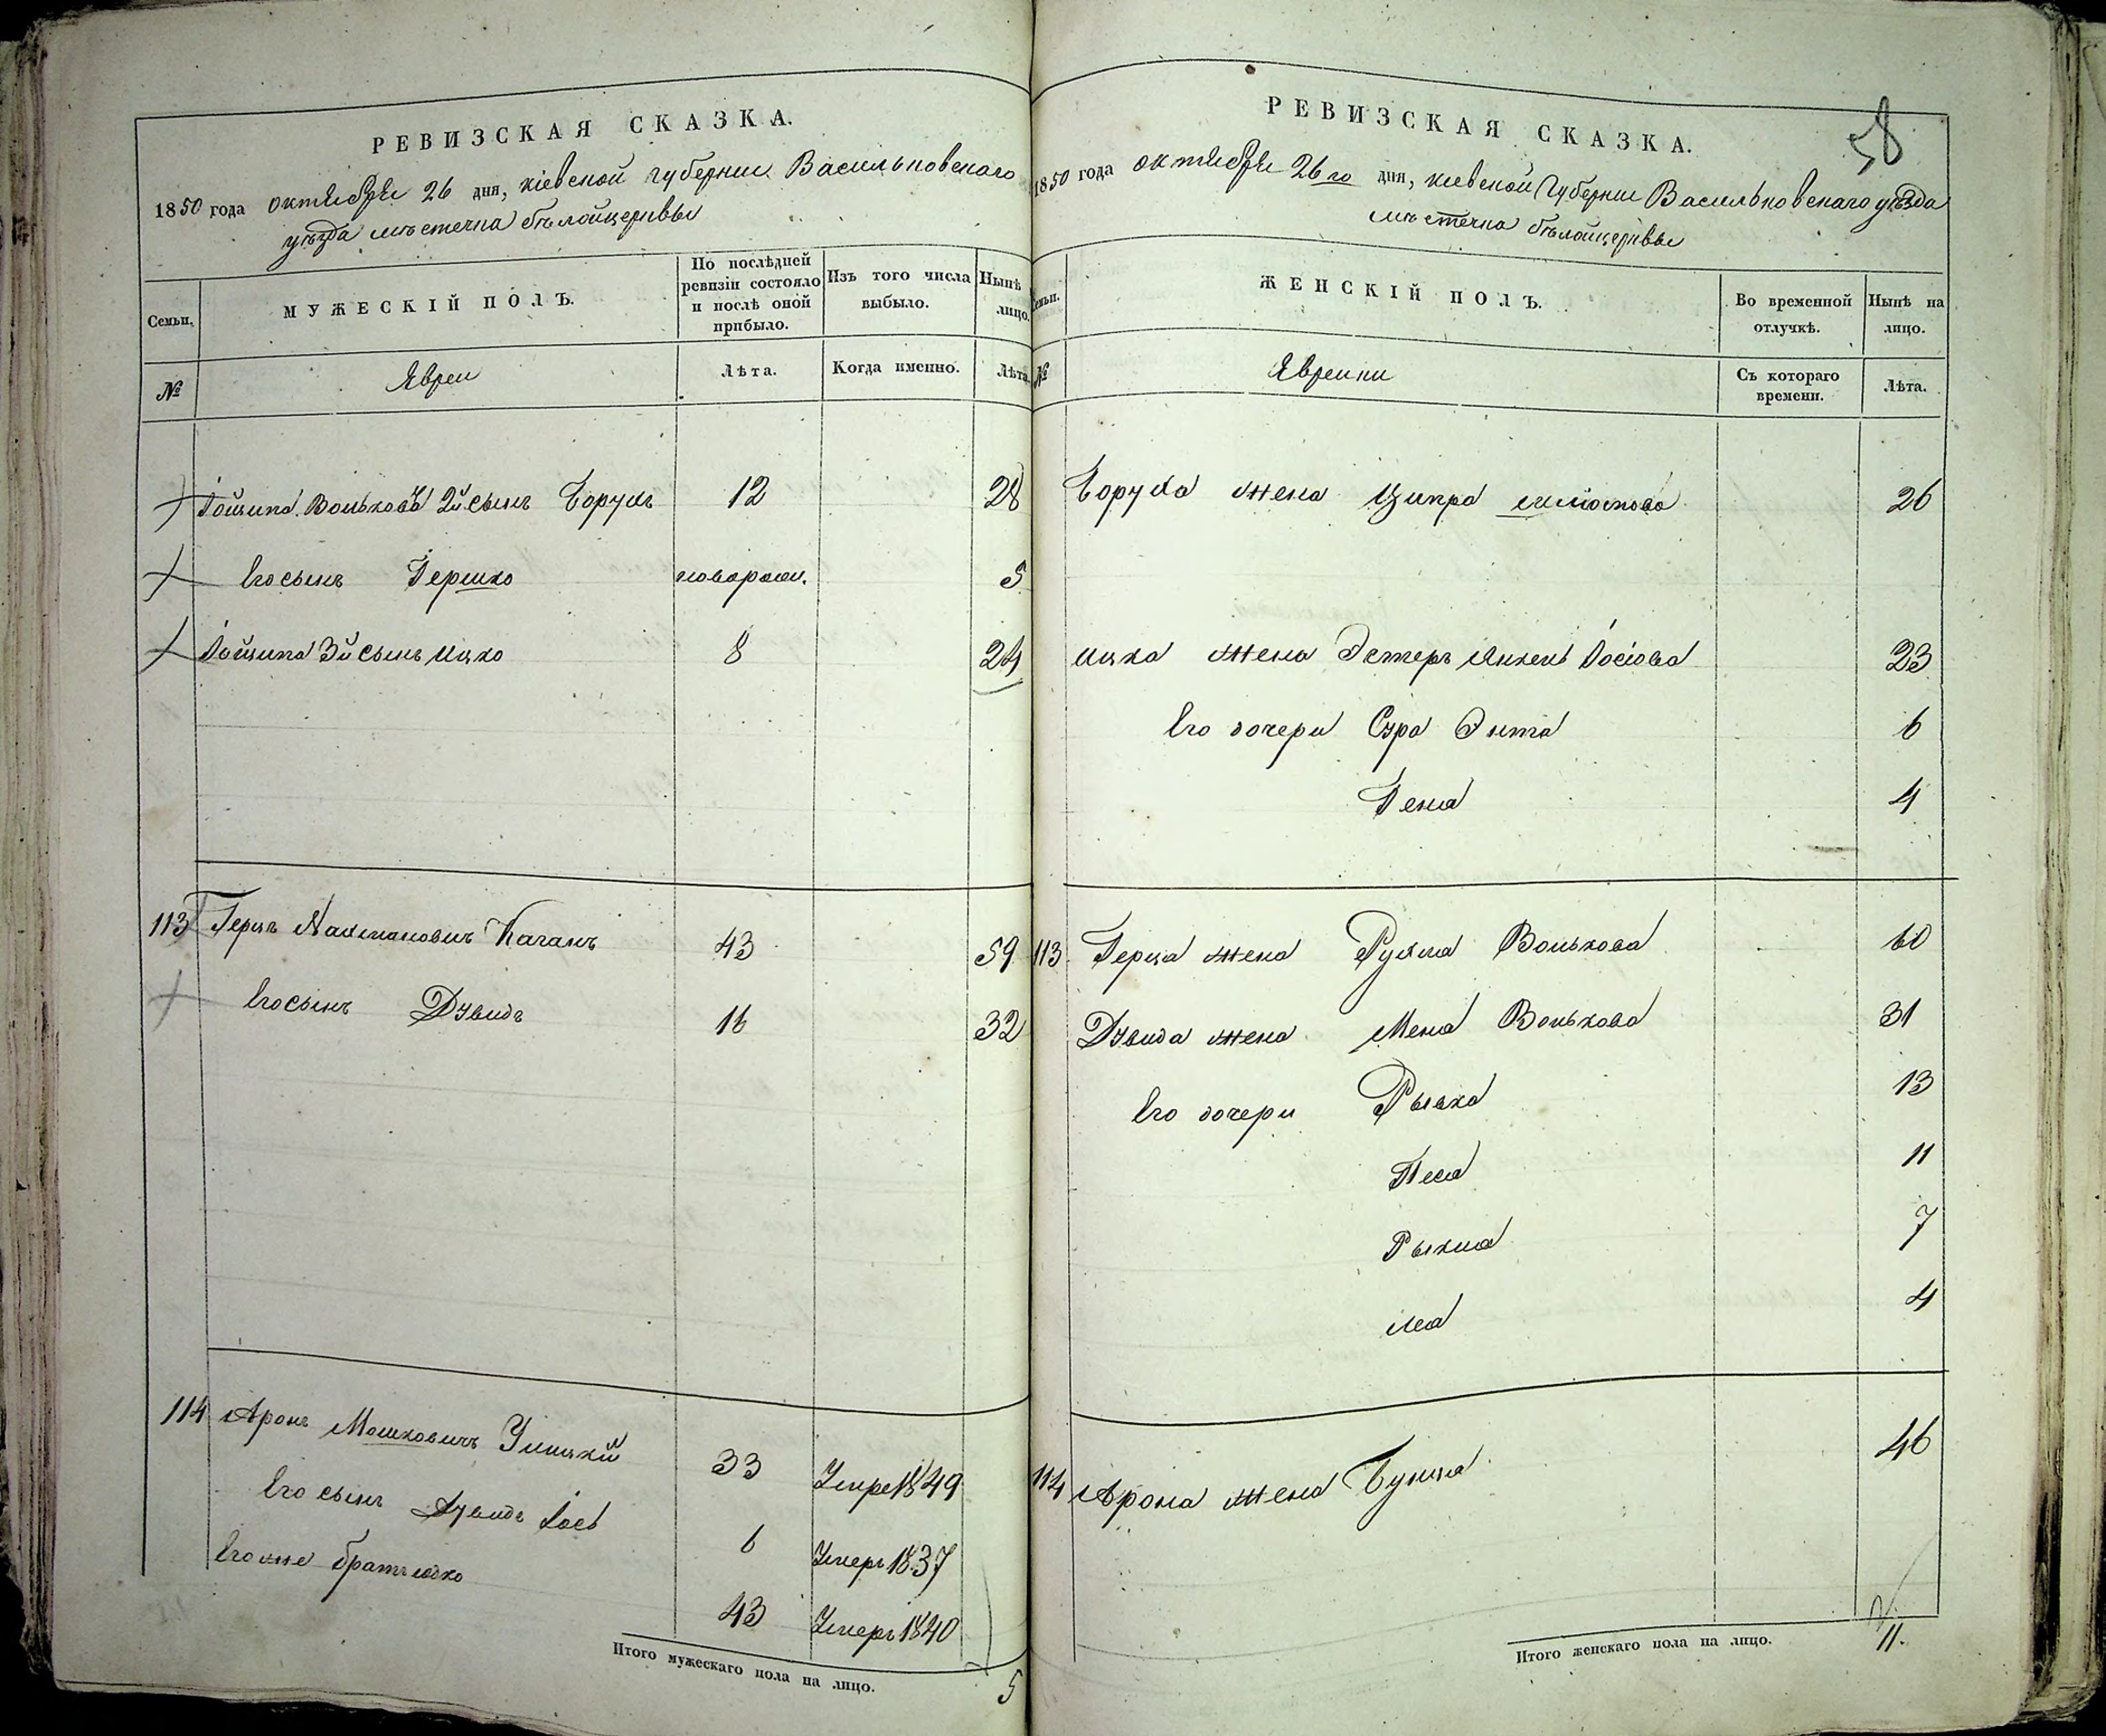 РЕВИЗСКАЯ СКАЗКА.
1850 года октября 26 дня, кіевской губерніи Васильковскаго
уѣзда мѣстечка бѣлойцерквы
Семьи.
МУЖЕСКІЙ ПОЛЪ.
По послѣдней ревизіи состояло и послѣ оной прибыло.
Изъ того числа выбыло.
Нынѣ лицо.
№
Евреи
Лѣта.
Когда именно.
Лѣта.
Вольковъ 2й сынъ Борухъ 12 28
Его сынъ Гершко новорожд. 5
3й сынъ Ицко 8 24
113 Герцъ Нахмановичъ Каганъ 43 59
Его сынъ Дувидъ 16 32
114 Аронъ Мошковичъ 33 Умре 1849
Его сынъ Дувидъ Іось 6 Умеръ 1837
Его же братъ 43 Умеръ 1840
Итого мужескаго пола на лицо. 5
58
РЕВИЗСКАЯ СКАЗКА.
1850 года октября 26го дня, кіевской Губерніи Васильковскаго уѣзда
мѣстечка бѣлойцерквы
Семьи.
ЖЕНСКІЙ ПОЛЪ.
Во временной отлучкѣ.
Нынѣ на лицо.
№
Еврейки
Съ котораго времени.
Лѣта.
Боруха жена Ципра 26
Ицка жена Эстеръ Янкель Іосіова 23
Его дочери Сура Энта 6
Геня 4
113 Герца жена РухляВолькова 60
Дувида жена Меня Волькова 31
Его дочери Рывка 13
Песя 11
Рыхля 7
Лея 4
114 Арона жена Бунця 46
Итого женскаго пола на лицо. 11.